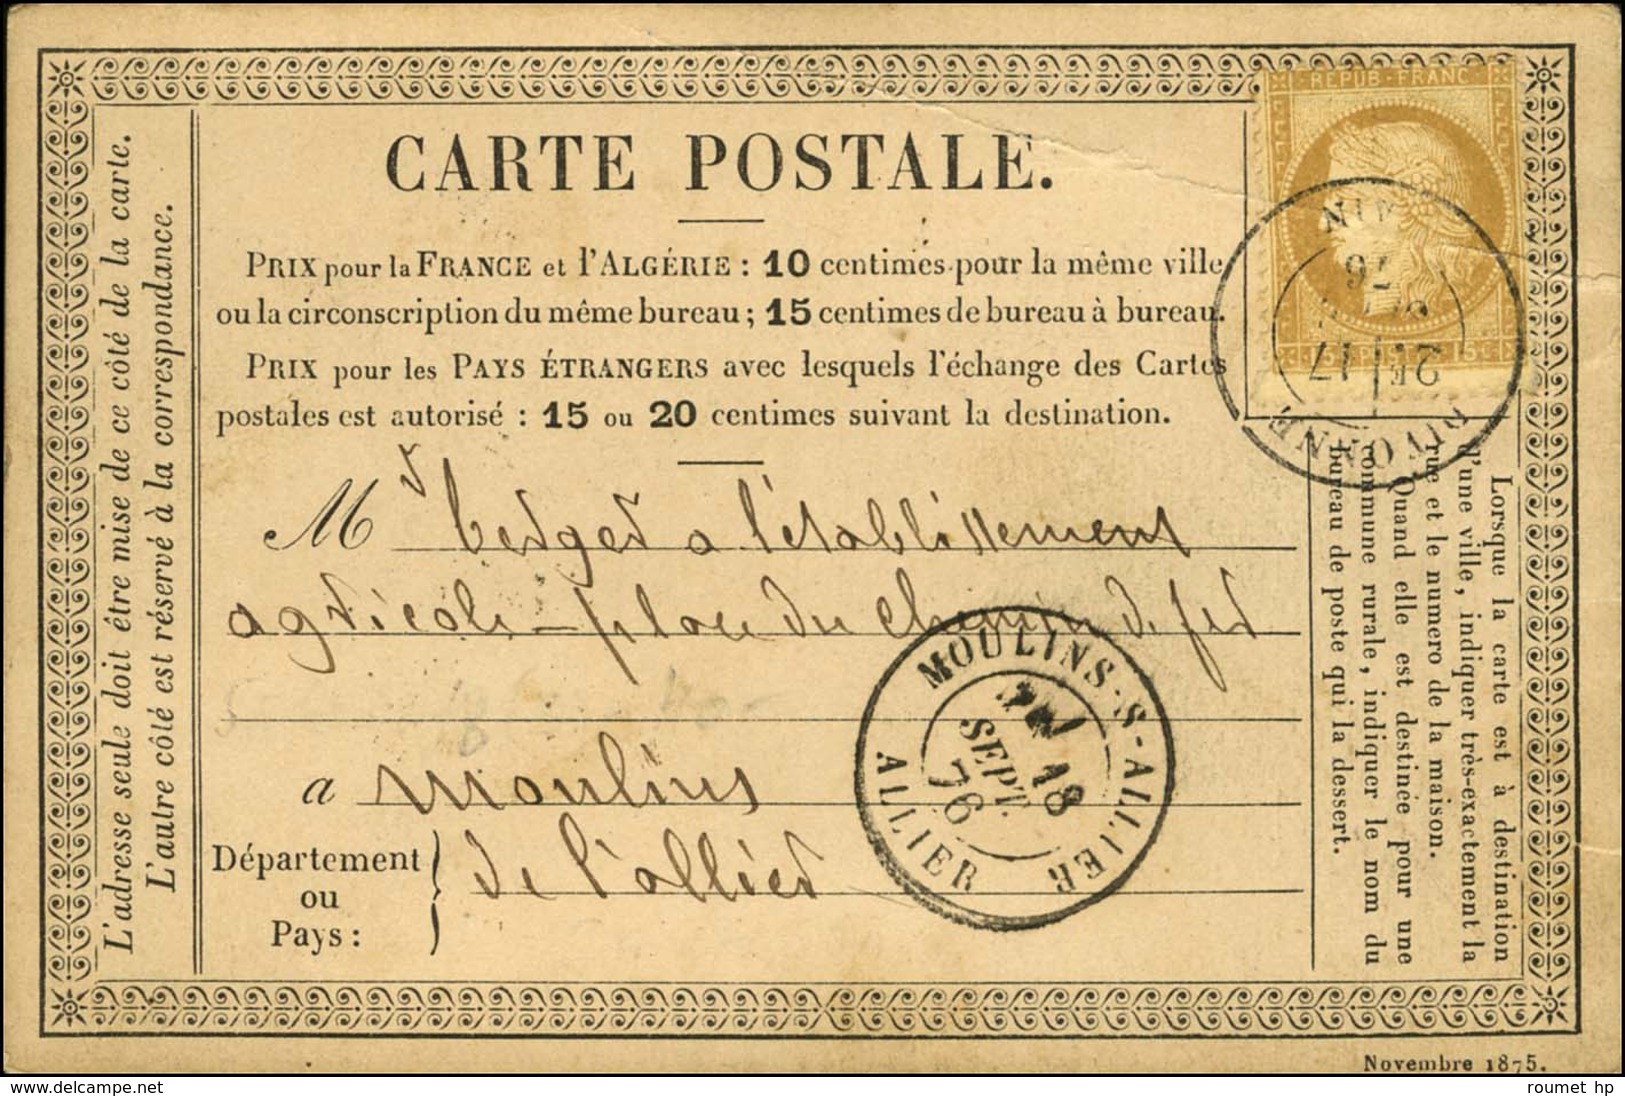 REPUB · FRANC
CARTE POSTALE.
PRIX pour la FRANCE et l'ALGÉRIE : 10 centimes pour la même ville
ou la circonscription du même bureau ; 15 centimes de bureau à bureau.
PRIX pour les PAYS ÉTRANGERS avec lesquels l'échange des Cartes
postales est autorisé : 15 ou 20 centimes suivant la destination.
L'adresse seule doit être mise de ce côté de la carte.
L'autre côté est réservé à la correspondance.
17
76
Mr Verger a l'établissement
agricole - place du Chemin de fer
a Moulins
Département
ou
Pays :
de l'allier
MOULINS-S-ALLIER
18
SEPT.
76
ALLIER
Lorsque la carte est à destination
d'une ville, indiquer très-exactement la
rue et le numero de la maison.
Quand elle est destinée pour une
commune rurale, indiquer le nom du
bureau de poste qui la dessert.
Novembre 1875.
delcampe.net
roumet hp